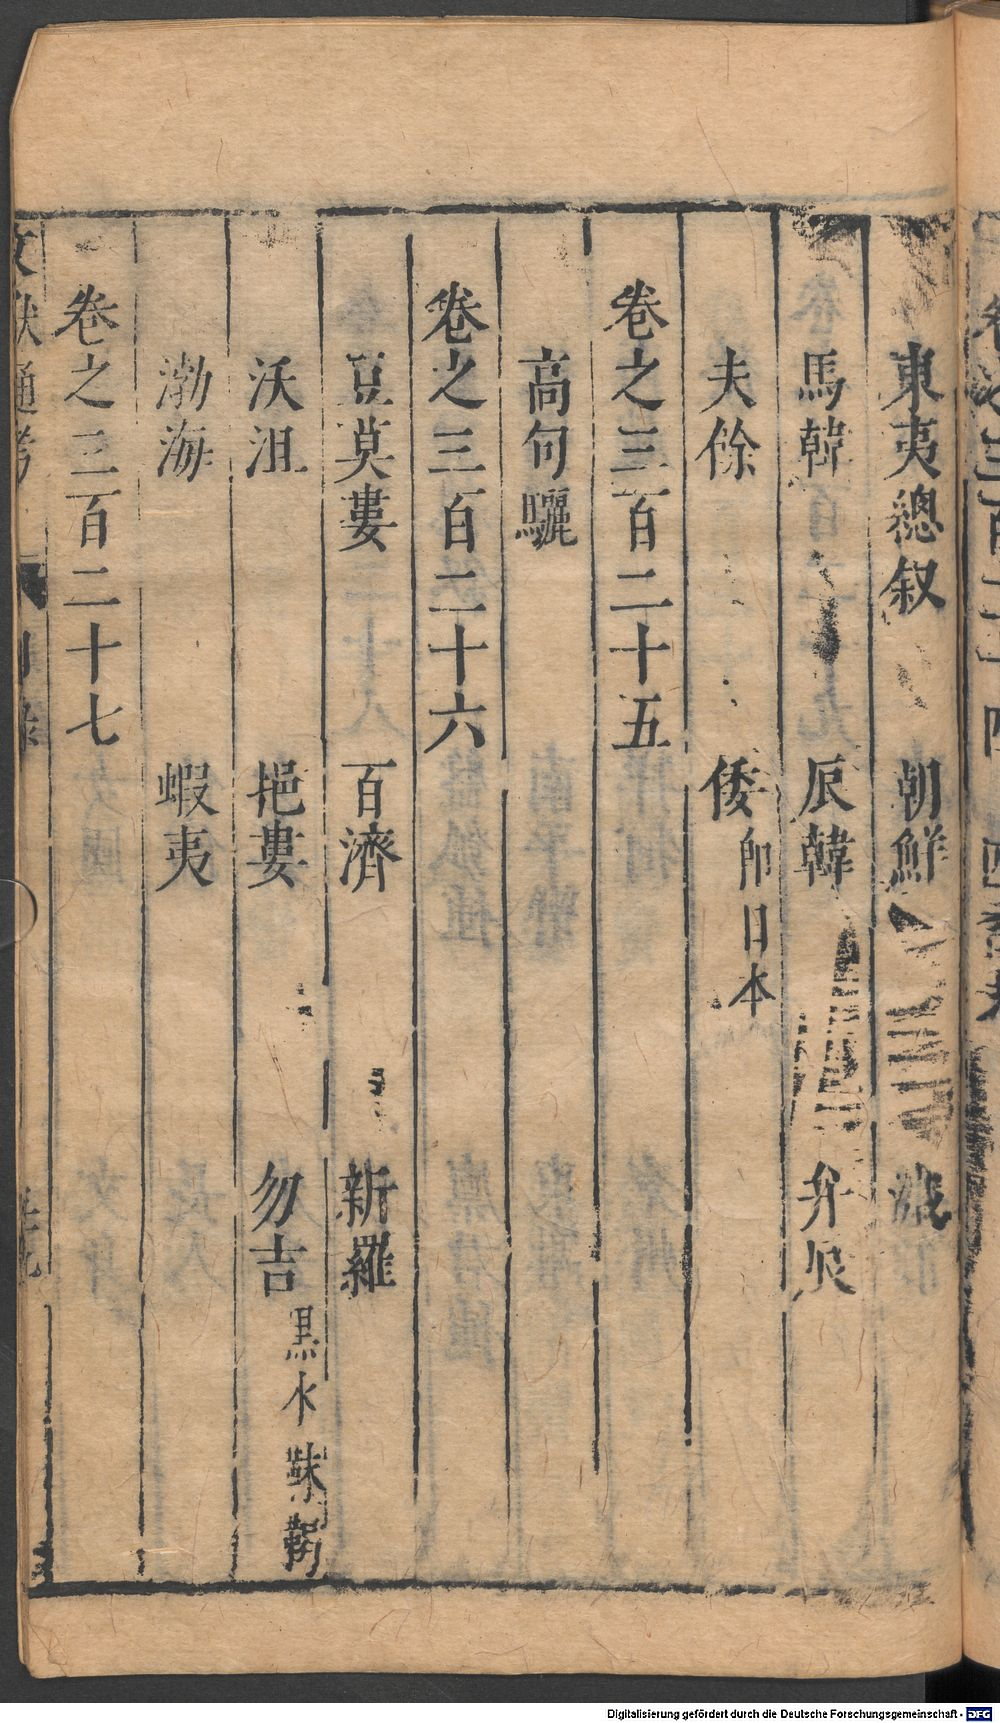 東夷總叙 朝鮮 濊
馬韓 辰韓 弁辰
夫餘 倭即日本
卷之三百二十五
高句驪
卷之三百二十六
豆莫婁 百濟 新羅
沃沮 挹婁 勿吉黒水靺鞨
渤海 蝦夷
卷之三百二十七
文獻通考 目錄
Digitalisierung gefördert durch die Deutsche Forschungsgemeinschaft - DFG